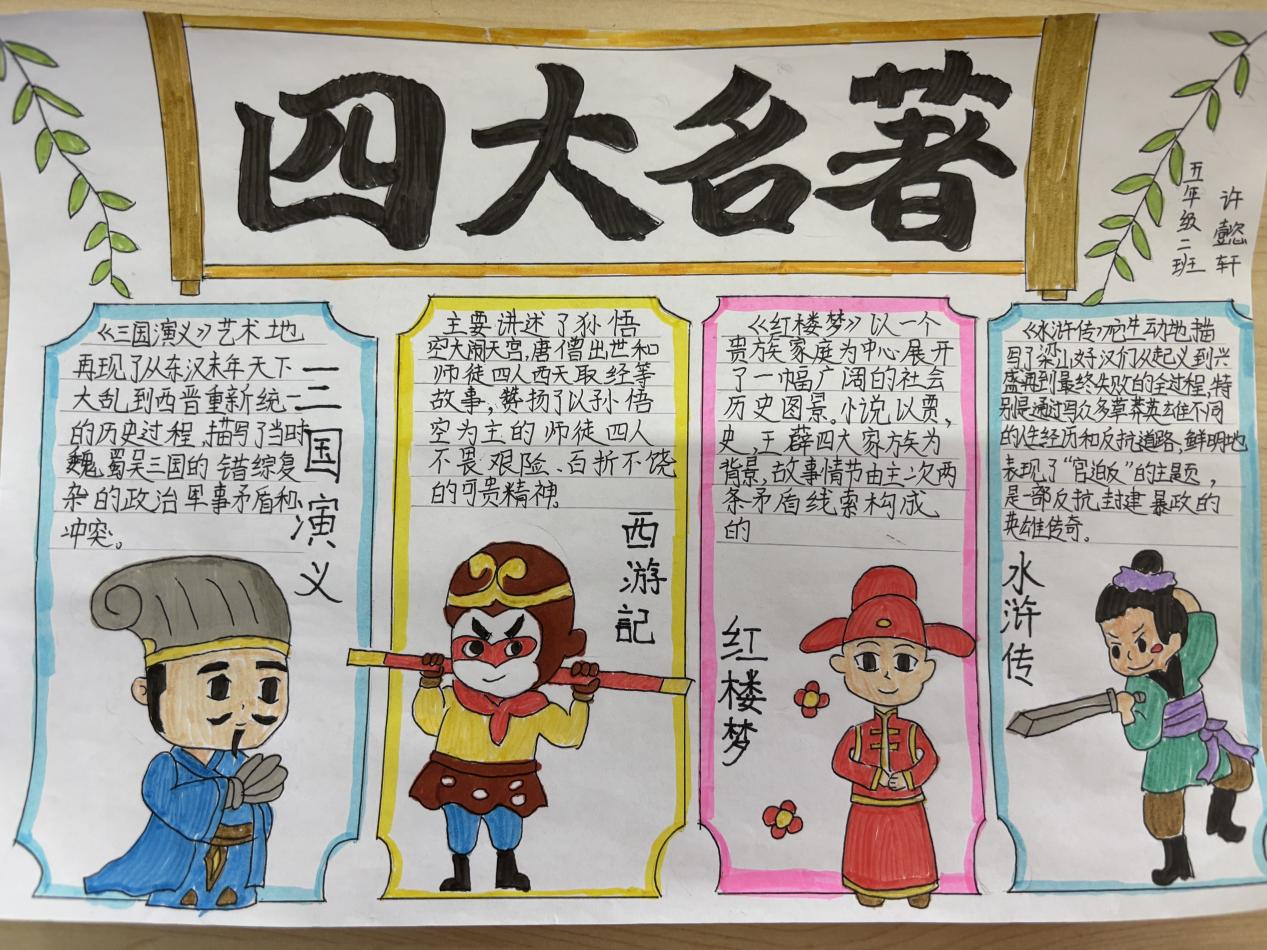 四大名著
五年级二班
许懿轩
《三国演义》艺术地
再现了从东汉末年天下
大乱到西晋重新统一
的历史过程,描写了当时
魏.蜀吴三国的错综复
杂的政治军事矛盾和
冲突。
三国演义
主要讲述了孙悟
空大闹天宫,唐僧出世和
师徒四人西天取经等
故事,赞扬了以孙悟
空为主的师徒四人
不畏艰险、百折不饶
的可贵精神。
西游記
《红楼梦》以一个
贵族家庭为中心展开
了一幅广阔的社会
历史图景。小说以贾,
史,王薛四大家族为
背景,故事情节由主次两
条矛盾线索构成
的
红楼梦
《水浒传》它生动地描
写了梁山好汉们从起义到兴
盛再到最终失败的全过程,特
别是通过写众多草莽英雄不同
的人生经历和反抗道路,鲜明地
表现了“官迫反”的主题,
是一部反抗封建暴政的
英雄传奇。
水浒传